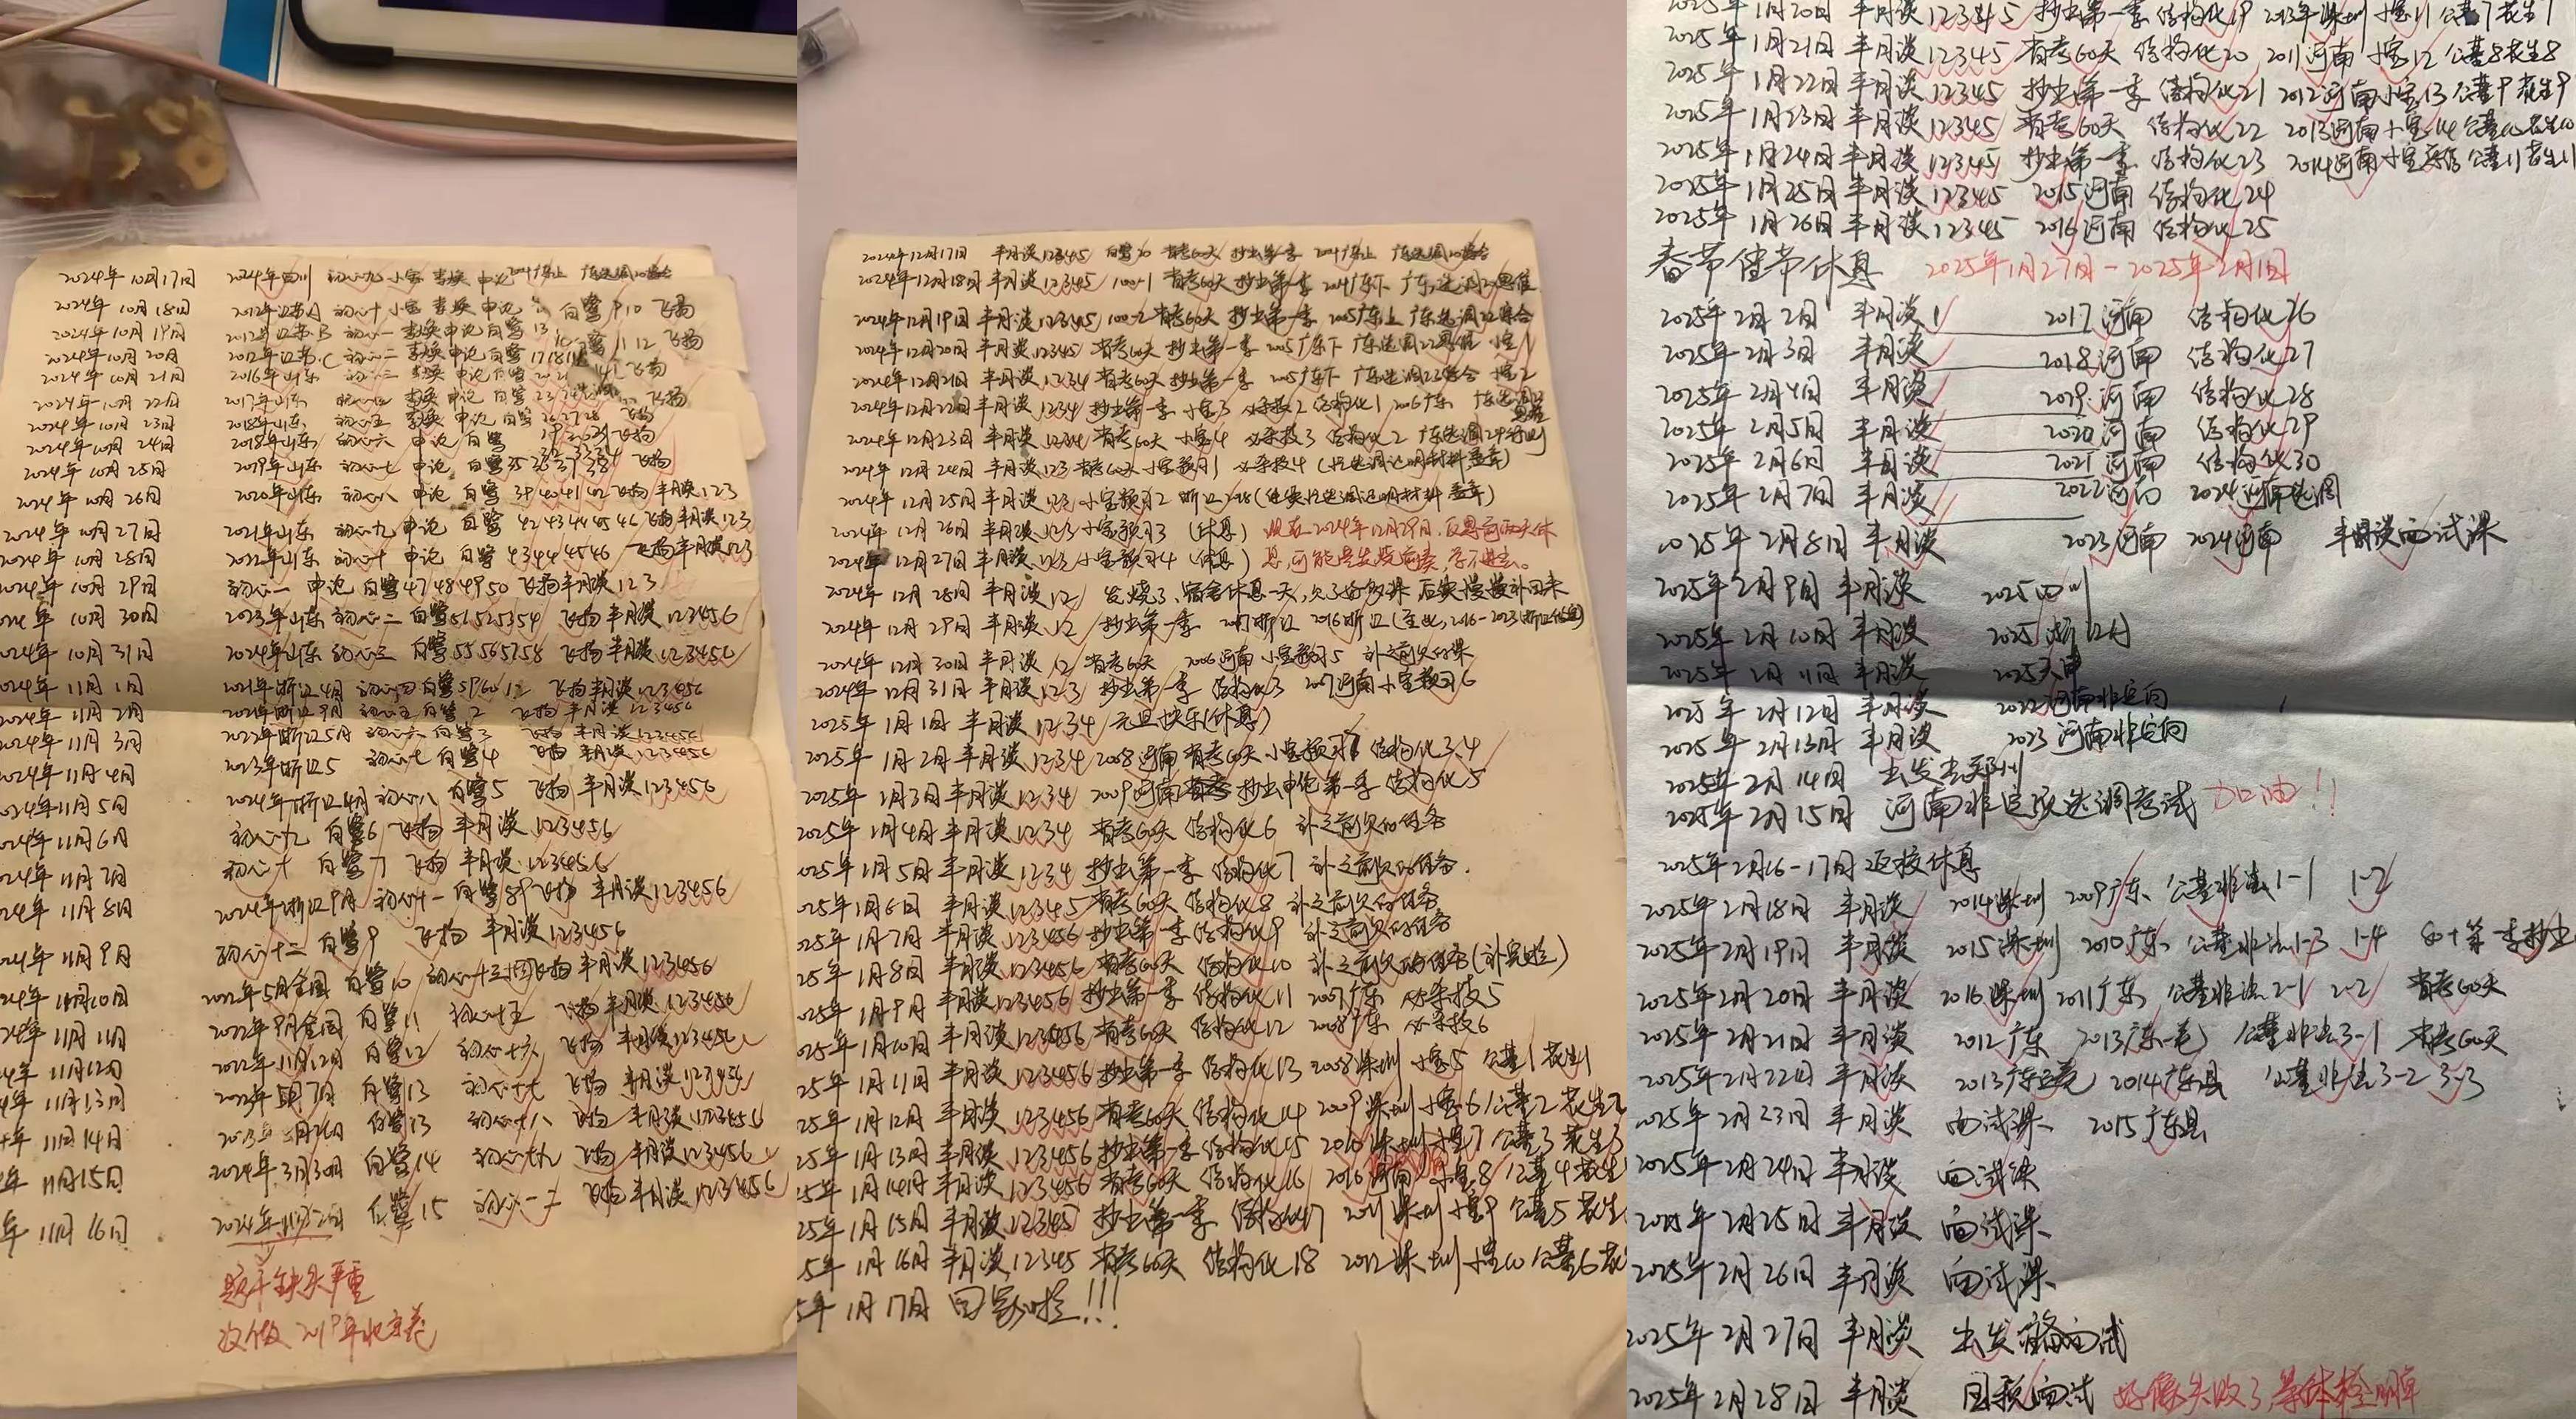 2024年10月17日 2024年四川 初心九 小宝 李焕 申论 广东选调20综合
2024年10月18日 2012年江苏A 初心十 小宝 李焕 申论 白鹭910 飞扬
2024年10月19日 2012年江苏B 初心一 李焕 申论 白鹭 13 飞扬
2024年10月20日 2012年江苏C 初心二 李焕 申论 白鹭 171819 飞扬
2024年10月21日 2016年山东 初心三 李焕 申论 白鹭 2021 飞扬
2024年10月22日 2017年山东 初心四 李焕 申论 白鹭 飞扬
2024年10月23日 2018年山东 初心五 李焕 申论 白鹭 262728 飞扬
2024年10月24日 2018年山东 初心六 申论 白鹭 飞扬
2024年10月25日 2019年山东 初心七 申论 白鹭 飞扬
2024年10月26日 2020年山东 初心八 申论 白鹭 39404142 飞扬 半月谈123
2024年10月27日 2021年山东 初心九 申论 白鹭 4243444546 飞扬 半月谈123
2024年10月28日 2022年山东 初心十 申论 白鹭 43444546 飞扬 半月谈123
2024年10月29日 初心一 申论 白鹭 47484950 飞扬 半月谈123
2024年10月30日 2023年山东 初心二 白鹭51525354 飞扬 半月谈123456
024年10月31日 2024年山东 初心三 白鹭55565758 飞扬 半月谈123456
024年11月1日 2021年浙江4月 初心四 白鹭596012 飞扬 半月谈123456
024年11月2日 2021年浙江9月 初心五 白鹭2 飞扬 半月谈123456
2024年11月3日 2022年浙江5月 初心六 白鹭3 飞扬 半月谈123456
2024年11月4日 2023年浙江5 初心七 白鹭4 飞扬 半月谈123456
024年11月5日 2024年浙江4月 初心八 白鹭5 飞扬 半月谈123456
024年11月6日 初心九 白鹭6 飞扬 半月谈123456
024年11月7日 初心十 白鹭7 飞扬 半月谈123456
24年11月8日 2024年浙江9月 初心十一 白鹭89 飞扬 半月谈123456
24年11月9日 初心十二 白鹭9 飞扬 半月谈123456
24年11月10日 2022年5月全国 白鹭10 初心十三 十四 飞扬 半月谈123456
24年11月11日 2022年9月全国 白鹭11 初心十五 飞扬 半月谈123456
4年11月12日 2022年11月12日 白鹭12 初心十六 飞扬 半月谈123456
年11月13日 白鹭13 初心十七 飞扬 半月谈123456
年11月14日 白鹭13 初心十八 飞扬 半月谈123456
年11月15日 2024年3月30日 白鹭14 初心十九 飞扬 半月谈123456
年11月16日 白鹭15 初心一二 飞扬 半月谈123456
题干缺失严重
没做 2019年北京卷
2024年12月17日 半月谈12345 白鹭20 省考60天 抄虫第一季 2004广东上 广东选调20综合
2024年12月18日 半月谈12345 100-1 省考60天 抄虫第一季 2004广东下 广东选调21思维
2024年12月19日 半月谈12345 100-2 省考60天 抄虫第一季 2005广东上 广东选调22综合
2024年12月20日 半月谈12345 省考60天 抄虫第一季 2005广东下 广东选调22思维 小宝1
2024年12月21日 半月谈1234 省考60天 抄虫第一季 2005广东下 广东选调23综合 小宝2
2024年12月22日 半月谈1234 抄虫第一季 小宝3 必杀技2 结构化1 2006广东 广东选调23思维
2024年12月23日 半月谈1234 省考60天 小宝4 必杀技3 结构化2 广东选调24行测
2024年12月24日 半月谈123 省考60天 小宝预习1 必杀技4
2024年12月25日 半月谈123 小宝预习2
2024年12月26日 半月谈123 小宝预习3 (休息) 现在2024年12月29日.反思前两天休
2024年12月27日 半月谈123 小宝预习4 (休息) 息,可能是发烧前奏,学不进去。
2024年12月28日 半月谈12 发烧了,宿舍休息一天,欠了好多课 后续慢慢补回来
2024年12月29日 半月谈12 抄虫第一季 2017浙江 2016浙江
2024年12月30日 半月谈12 省考60天 2006河南 小宝预习5 补之前欠的课
2024年12月31日 半月谈123 抄虫第一季 结构化3 2007河南 小宝预习6
2025年1月1日 半月谈1234 元旦快乐(休息)
2025年1月2日 半月谈1234 2008河南 省考60天 小宝预习7 结构化3.4
2025年1月3日 半月谈1234 2009河南 抄虫申论第一季 结构化5
2025年1月4日 半月谈1234 省考60天 结构化6 补之前欠的任务
025年1月5日 半月谈1234 抄虫第一季 结构化7 补之前欠的任务.
025年1月6日 半月谈12345 省考60天 结构化8 补之前欠的任务
025年1月7日 半月谈123456 抄虫第一季 结构化9 补之前欠的任务
25年1月8日 半月谈123456 省考60天 结构化10 补之前欠的任务(补完啦)
025年1月9日 半月谈123456 抄虫第一季 结构化11 2007广东 必杀技5
025年1月10日 半月谈123456 省考60天 结构化12 2008广东 必杀技6
25年1月11日 半月谈123456 抄虫第一季 结构化13 2008深圳 小宝5 公基1 花生1
25年1月12日 半月谈123456 省考60天 结构化14 2009深圳 小宝6 公基2 花生2
25年1月13日 半月谈123456 抄虫第一季 结构化15 2010深圳 小宝7 公基3 花生3
25年1月14日 半月谈123456 省考60天 结构化16 2010河南 小宝8 公基4 花生
25年1月15日 半月谈12345 抄虫第一季 结构化17 2011深圳 小宝9 公基5 花生
5年1月16日 半月谈12345 省考60天 结构化18 2012深圳 小宝10 公基6 花
5年1月17日 回家啦!!!
2025年1月20日 半月谈12345 抄虫第一季 结构化19 2013年深圳 小宝11 公基7 花生7
2025年1月21日 半月谈12345 省考60天 结构化20 2011河南 小宝12 公基8 花生8
2025年1月22日 半月谈12345 抄虫第一季 结构化21 2012河南 小宝13 公基9 花生9
2025年1月23日 半月谈12345 省考60天 结构化22 2013河南 小宝14 公基10 花生10
2025年1月24日 半月谈12345 抄虫第一季 结构化23 2014河南 小宝 公基11 花生11
2025年1月25日 半月谈12345 2015河南 结构化24
2025年1月26日 半月谈12345 2016河南 结构化25
春节佳节休息 2025年1月27日-2025年2月1日
2025年2月2日 半月谈1 2017河南 结构化26
2025年2月3日 半月谈 2018河南 结构化27
2025年2月4日 半月谈 2019河南 结构化28
2025年2月5日 半月谈 2020河南 结构化29
2025年2月6日 半月谈 2021河南 结构化30
2025年2月7日 半月谈 2022河南 2024河南选调
2025年2月8日 半月谈 2023河南 2024河南 半月谈面试课
2025年2月9日 半月谈 2025四川
2025年2月10日 半月谈 2025浙江A
2025年2月11日 半月谈 2025天津
2025年2月12日 半月谈 2022河南非定向
2025年2月13日 半月谈 2023河南非定向
2025年2月14日 出发去郑州
2025年2月15日 河南非定项选调考试 加油!!
2025年2月16-17日 返校休息
2025年2月18日 半月谈 2014深圳 2009广东 公基非法1-1 1-2
2025年2月19日 半月谈 2015深圳 2010广东 公基非法1-3 1-4 四十 第一季抄虫
2025年2月20日 半月谈 2016深圳 2011广东 公基非法2-1 2-2 省考60天
2025年2月21日 半月谈 2012广东 2013广东 公基非法3-1 省考60天
2025年2月22日 半月谈 2013广东 2014广东县 公基非法3-2 3-3
2025年2月23日 半月谈 面试课 2015广东县
2025年2月24日 半月谈 面试课
2025年2月25日 半月谈 面试课
2025年2月26日 半月谈 面试课
2025年2月27日 半月谈 出发 面试
2025年2月28日 半月谈 国税面试 好像失败了,等体检名单